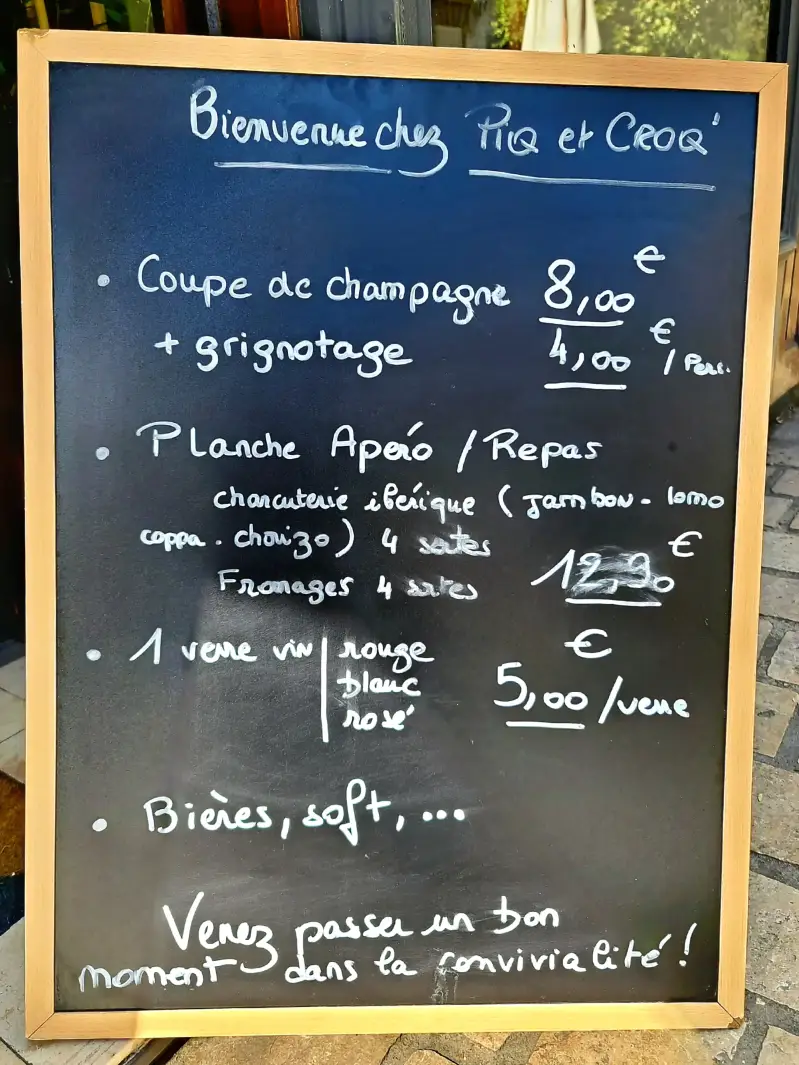 Bienvenue chez PIQ et CROQ'
• Coupe de champagne 8,00 €
+ grignotage 4,00 € / Pers.
• Planche Apéro / Repas
charcuterie ibérique (Jambon - lomo
coppa . chorizo) 4 sortes
Fromages 4 sortes 12,90 €
• 1 verre vin | rouge
blanc
rosé
5,00 € /verre
• Bières, soft, ...
Venez passer un bon
moment dans la convivialité !